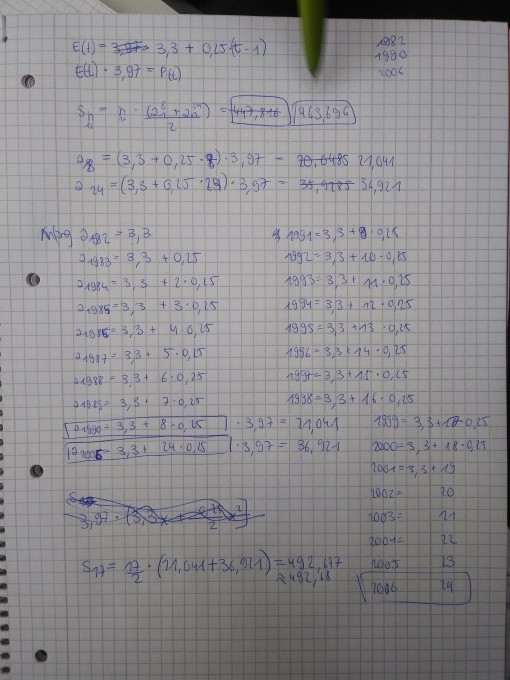 E(t) = 3,3 + 0,25(t-1)
1982
1990
2006
E(t) · 3,97 = P(t)
= 447,816 463,696
a8 = (3,3 + 0,25 · 8) · 3,97 = 20,0485 21,041
a24 = (3,3 + 0,25 · 24) · 3,97 = 35,9285 36,921
a1982 = 3,3
a1983 = 3,3 + 0,25
a1984 = 3,3 + 2 · 0,25
a1985 = 3,3 + 3 · 0,25
a1986 = 3,3 + 4 · 0,25
a1987 = 3,3 + 5 · 0,25
a1988 = 3,3 + 6 · 0,25
a1989 = 3,3 + 7 · 0,25
a1990 = 3,3 + 8 · 0,25 · 3,97 = 21,041
a2006 = 3,3 + 24 · 0,25 · 3,97 = 36,921
1991 = 3,3 + 9 · 0,25
1992 = 3,3 + 10 · 0,25
1993 = 3,3 + 11 · 0,25
1994 = 3,3 + 12 · 0,25
1995 = 3,3 + 13 · 0,25
1996 = 3,3 + 14 · 0,25
1997 = 3,3 + 15 · 0,25
1998 = 3,3 + 16 · 0,25
1999 = 3,3 + 17 · 0,25
2000 = 3,3 + 18 · 0,25
2001 = 3,3 + 19
2002 = 20
2003 = 21
2004 = 22
2005 23
2006 24
S17 = 17/2 · (21,041 + 36,921) = 492,677
≈ 492,68